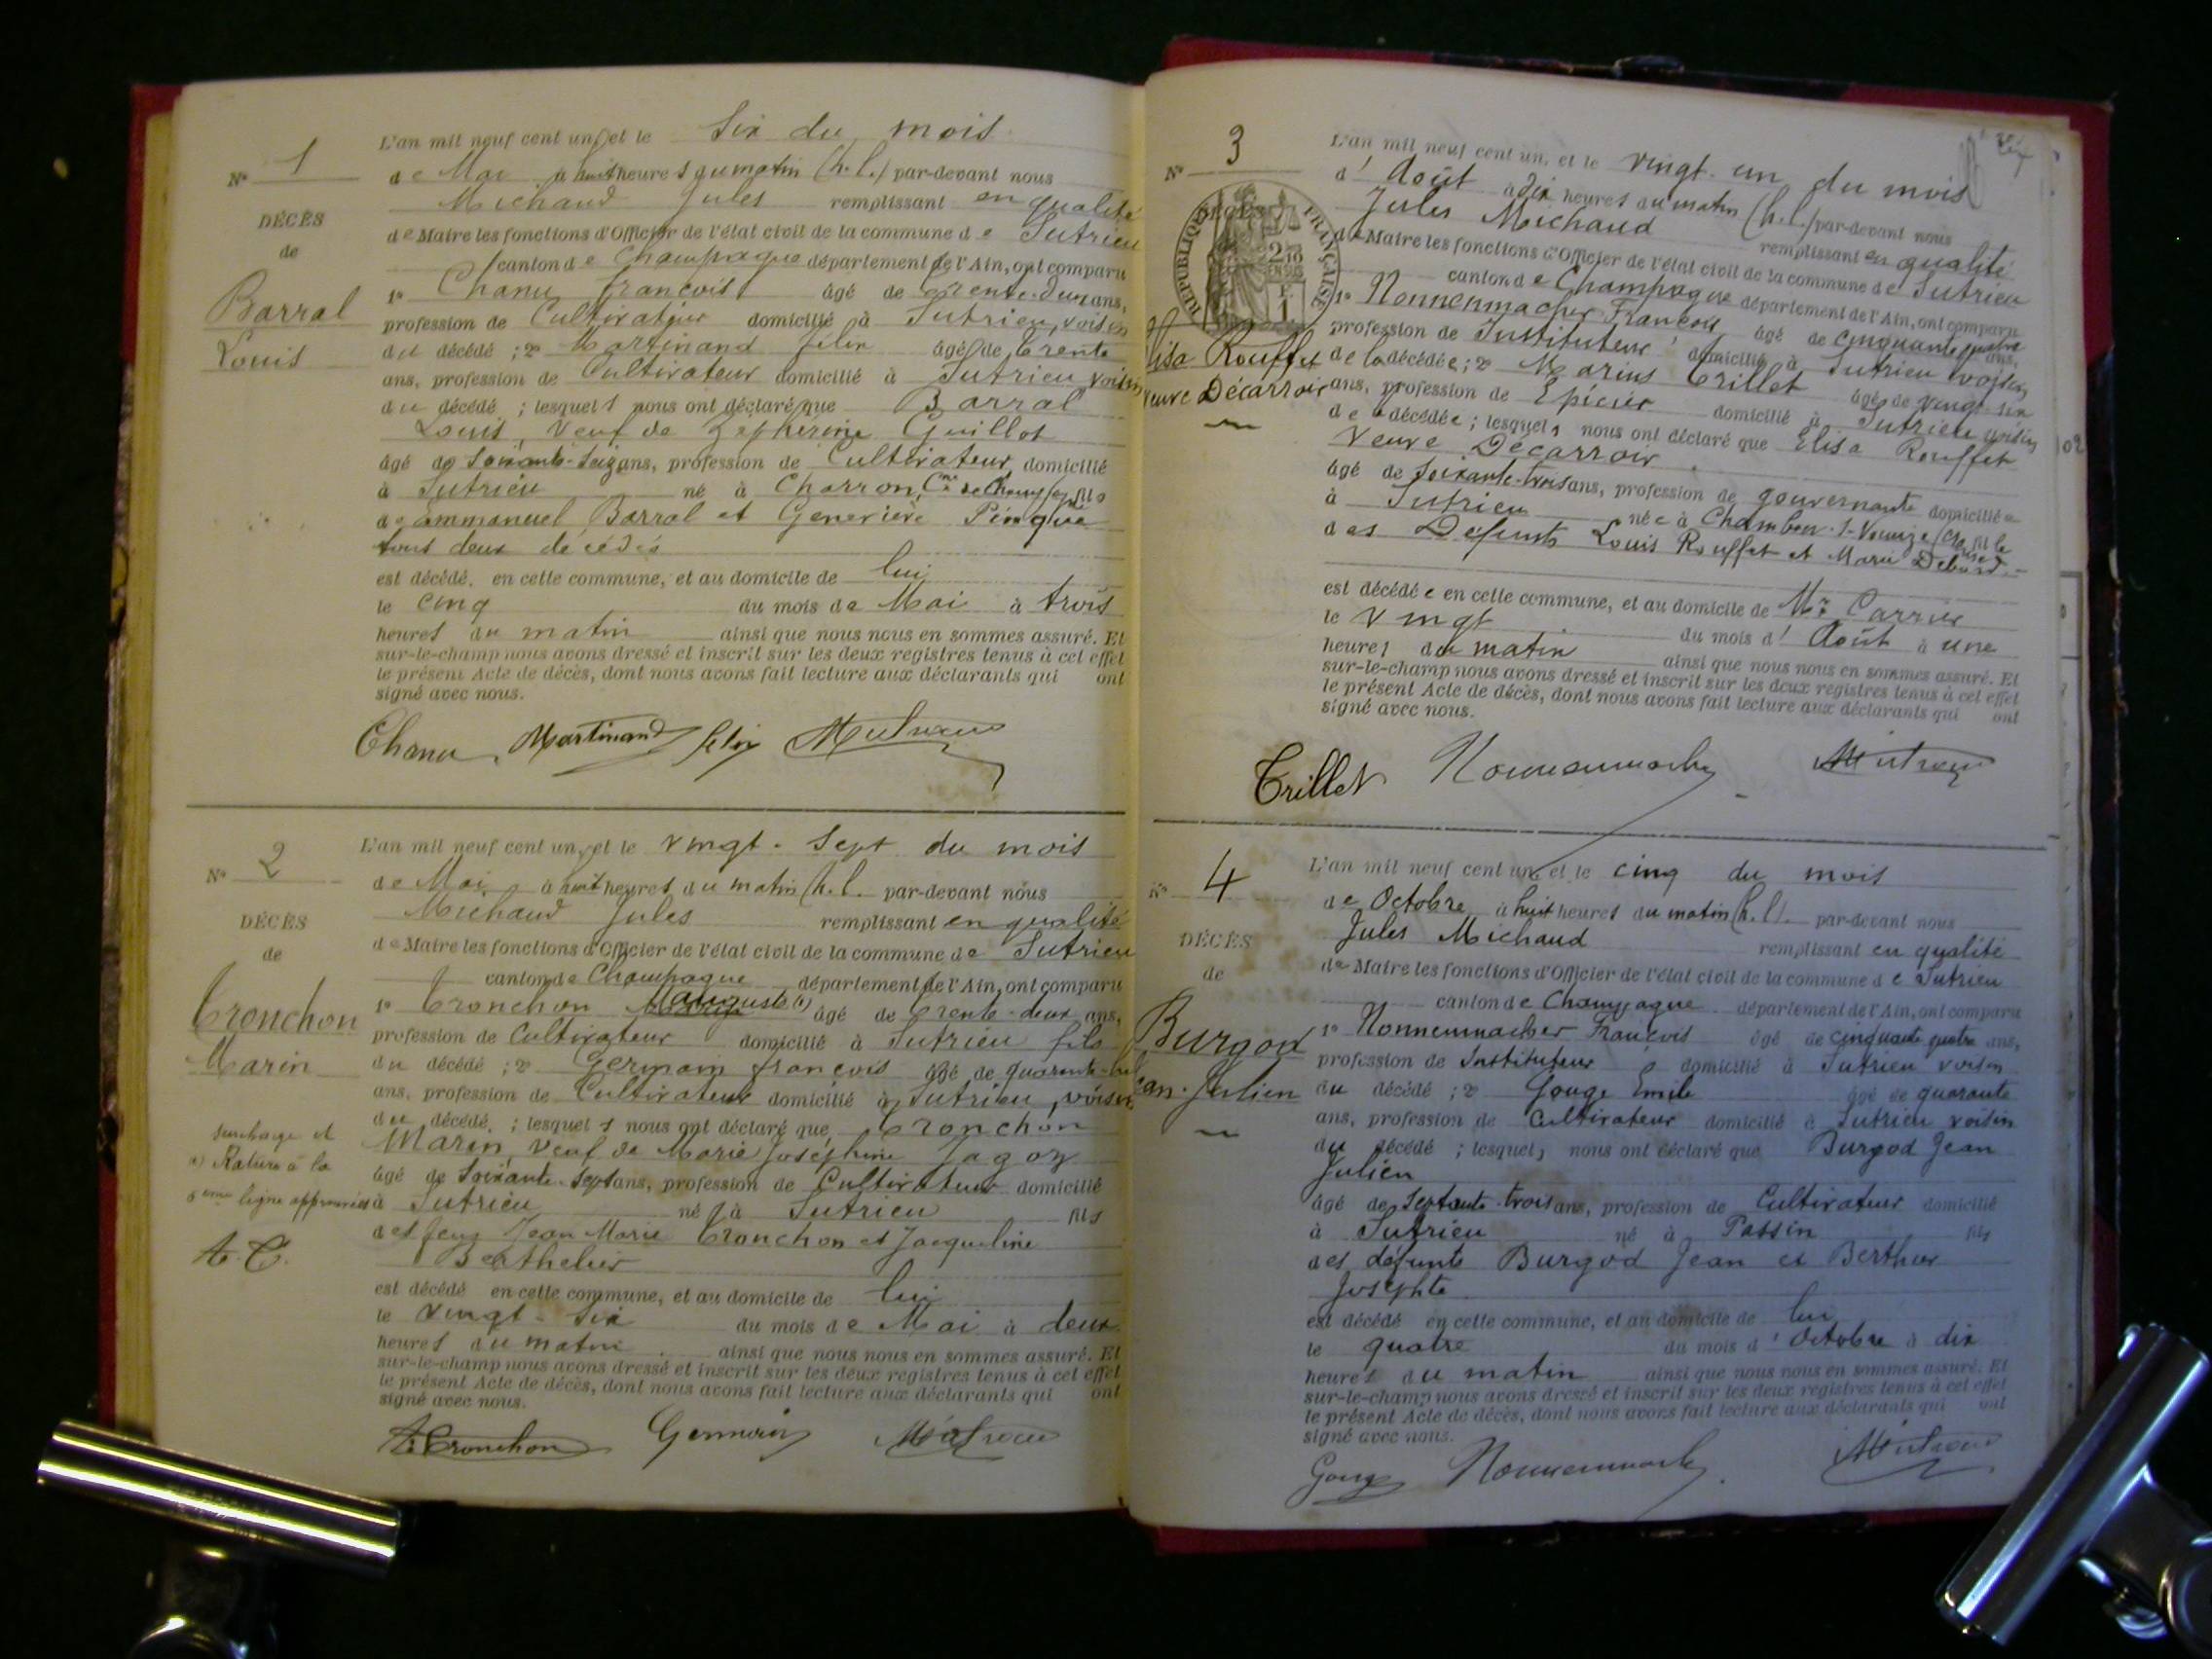 N° 1
DÉCÈS
de
Barral
Louis
L'an mil neuf cent un, et le Six du mois
de Mai à huit heures du matin (h. l.) par-devant nous
Michaud Jules remplissant en qualité
de Maire les fonctions d'Officier de l'état civil de la commune de Sutrieu
canton de Champagne département de l'Ain, ont comparu
1° Chanu françois âgé de trente-deux ans,
profession de Cultivateur domicilié à Sutrieu, voisin
du décédé ; 2° Martinand félix âgé de trente
ans, profession de Cultivateur domicilié à Sutrieu voisin
du décédé ; lesquels nous ont déclaré que Barral
Louis, Veuf de Zépherine Guillot
âgé de Soixante-Seize ans, profession de Cultivateur domicilié
à Sutrieu né à Charron, Cne de fils
de Emmanuel Barral et Geneviève Pingue
tous deux décédés
est décédé, en cette commune, et au domicile de lui
le cinq du mois de Mai à trois
heures du matin ainsi que nous nous en sommes assuré. Et
sur-le-champ nous avons dressé et inscrit sur les deux registres tenus à cet effet
le présent Acte de décès, dont nous avons fait lecture aux déclarants qui ont
signé avec nous.
Chanu Martinand félix
N° 2
DÉCÈS
de
Tronchon
Marin
L'an mil neuf cent un, et le vingt-Sept du mois
de Mai à huit heures du matin (h. l. par-devant nous
Michaud Jules remplissant en qualité
de Maire les fonctions d'Officier de l'état civil de la commune de Sutrieu
canton de Champagne département de l'Ain, ont comparu
1° Tronchon Auguste (a) âgé de trente-deux ans,
profession de Cultivateur domicilié à Sutrieu fils
du décédé ; 2° Germain françois âgé de quarante-
ans, profession de Cultivateur domicilié à Sutrieu, voisin
du décédé, ; lesquels nous ont déclaré que Tronchon
Marin, Veuf de Marie Joséphine Jagoz
âgé de Soixante-Sept ans, profession de Cultivateur domicilié
à Sutrieu né à Sutrieu fils
des feus Jean Marie Tronchon et Jacqueline
Berthelier
est décédé en cette commune, et au domicile de lui
le vingt-Six du mois de Mai à deux
heures du matin ainsi que nous nous en sommes assuré. Et
sur-le-champ nous avons dressé et inscrit sur les deux registres tenus à cet effet
le présent Acte de décès, dont nous avons fait lecture aux déclarants qui ont
signé avec nous.
surcharge et
a) Rature à la
5eme ligne approuvées
A. T.
A. Tronchon Germain
N° 3
DÉCÈS
RÉPUBLIQUE FRANÇAISE
lisa Rouffet
euve Décarroir
L'an mil neuf cent un, et le vingt-un du mois
d'Août à dix heures du matin (h. l.) par-devant nous
Jules Michaud remplissant en qualité
de Maire les fonctions d'Officier de l'état civil de la commune de Sutrieu
canton de Champagne département de l'Ain, ont comparu
1° Nonnenmacher François âgé de cinquante quatre ans,
profession de Instituteur domicilié à Sutrieu voisin
de la décédée ; 2° Marius Trillet âgé de vingt-six
ans, profession de Epicier domicilié à Sutrieu voisin
de la décédée ; lesquels nous ont déclaré que Elisa Rouffet
Veuve Décarroir
âgé de Soixante-trois ans, profession de gouvernante domiciliée
à Sutrieu née à Chambon-s-Voueize fille
des Défunts Louis Rouffet et Marie
est décédée en cette commune, et au domicile de Mr Carrier
le Vingt du mois d'Août à une
heures du matin ainsi que nous nous en sommes assuré. Et
sur-le-champ nous avons dressé et inscrit sur les deux registres tenus à cet effet
le présent Acte de décès, dont nous avons fait lecture aux déclarants qui ont
signé avec nous.
Trillet Nonnenmacher
N° 4
DÉCÈS
de
Burgod
ean-Julien
L'an mil neuf cent un, et le cinq du mois
de Octobre à huit heures du matin (h. l). par-devant nous
Jules Michaud remplissant en qualité
de Maire les fonctions d'Officier de l'état civil de la commune de Sutrieu
canton de Champagne département de l'Ain, ont comparu
1° Nonnenmacher François âgé de cinquante quatre ans,
profession de Instituteur domicilié à Sutrieu voisin
du décédé ; 2° Gouge Emile âgé de quarante
ans, profession de Cultivateur domicilié à Sutrieu voisin
du décédé ; lesquels nous ont déclaré que Burgod Jean
Julien
âgé de Septante-trois ans, profession de Cultivateur domicilié
à Sutrieu né à Passin fils
des défunts Burgod Jean et Berthier
Josephte
est décédé en cette commune, et au domicile de lui
le quatre du mois d'Octobre à dix
heures du matin ainsi que nous nous en sommes assuré. Et
sur-le-champ nous avons dressé et inscrit sur les deux registres tenus à cet effet
le présent Acte de décès, dont nous avons fait lecture aux déclarants qui ont
signé avec nous.
Gouge Nonnenmacher